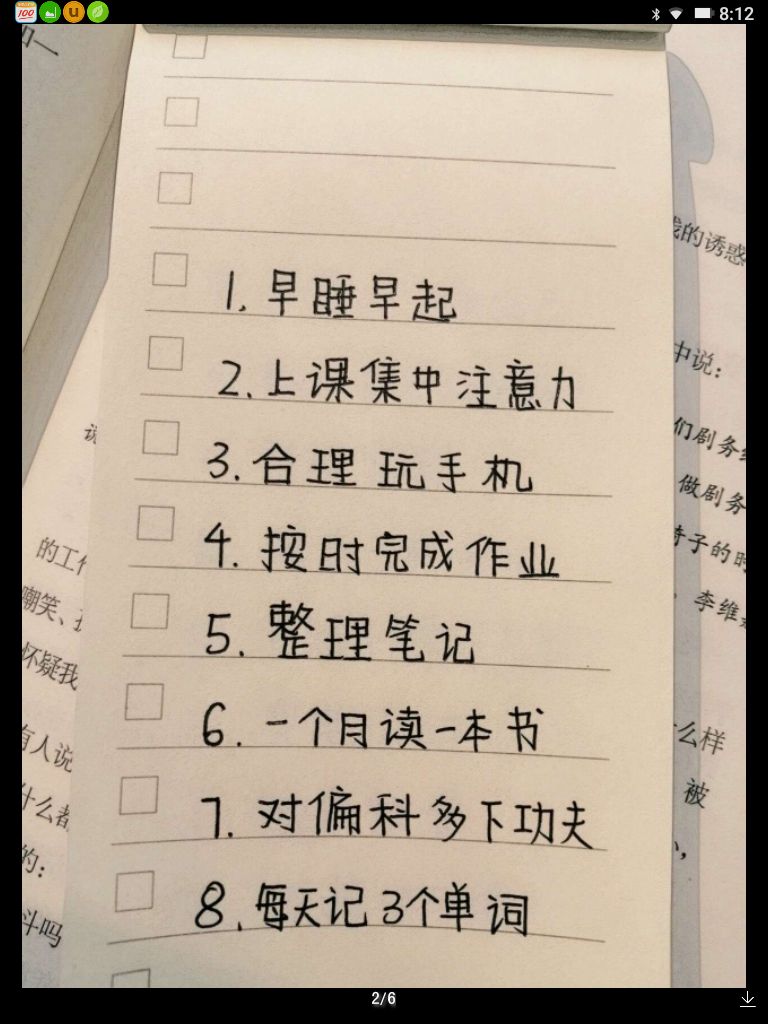 100
u
8:12
四一
1. 早睡早起
2. 上课集中注意力
3. 合理玩手机
4. 按时完成作业
5. 整理笔记
6. 一个月读一本书
7. 对偏科多下功夫
8. 每天记3个单词
的诱惑
中说：
们剧务
做剧务
椅子的时
李维
么样
被
说
的工作
嘲笑、
怀疑我
有人说
什么都
的：
斗吗
2/6